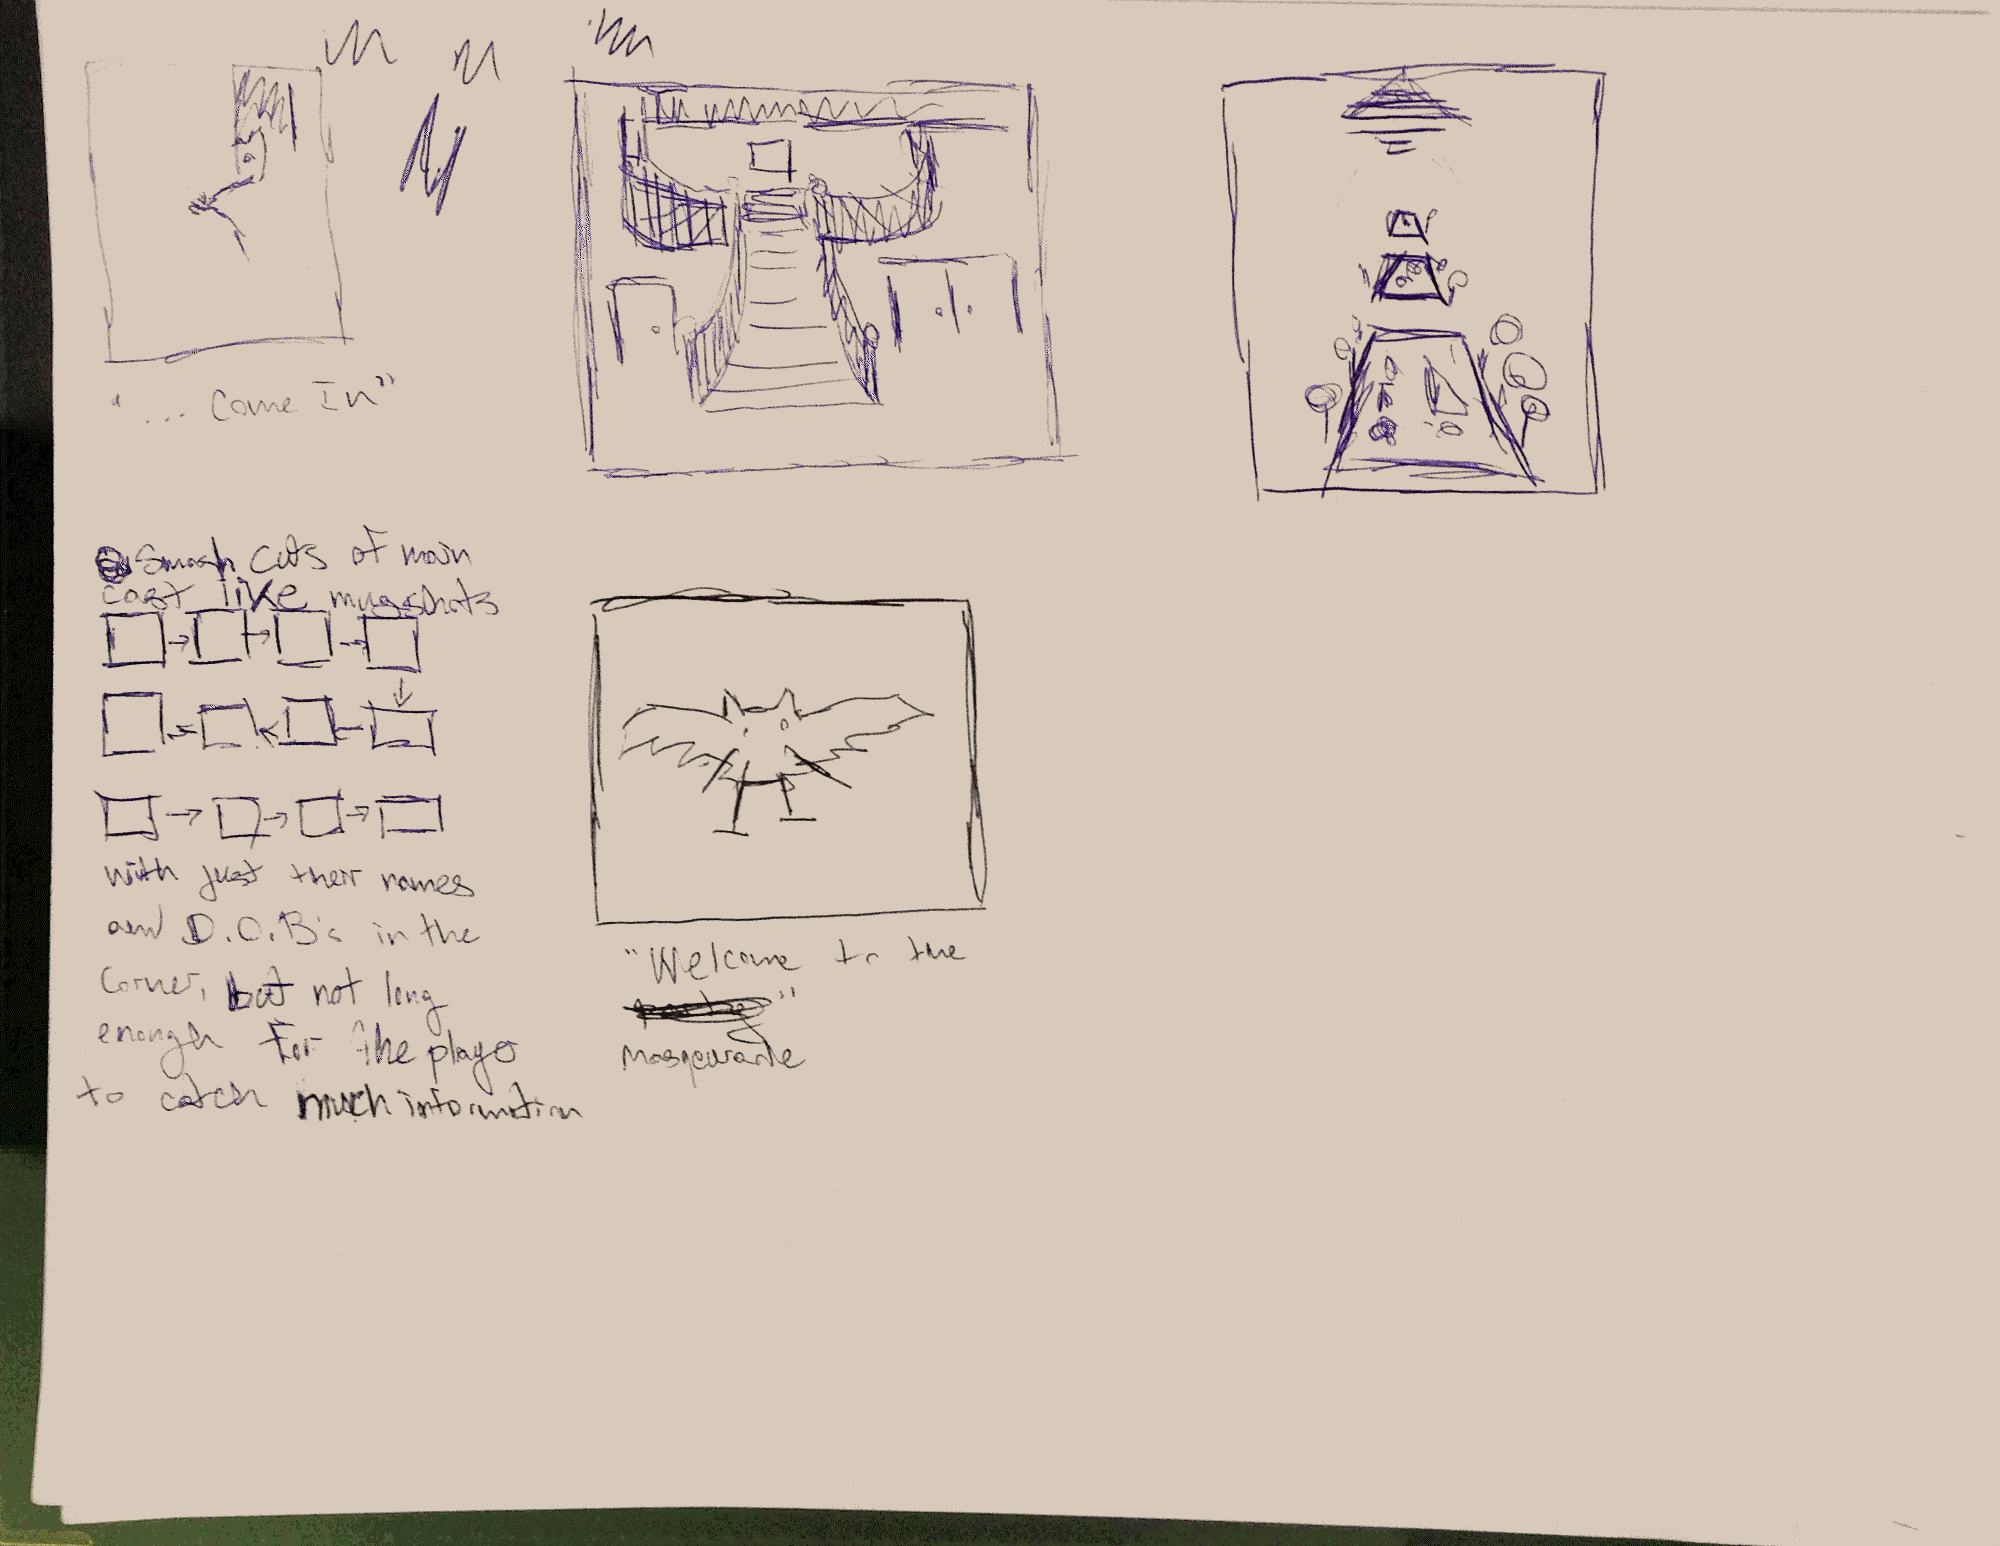 "... Come In"
Smash cuts of main
cast like mugshots
with just their names
and D.O.B's in the
corner, but not long
enough for the player
to catch much information
"Welcome to the
"
Masqeurade